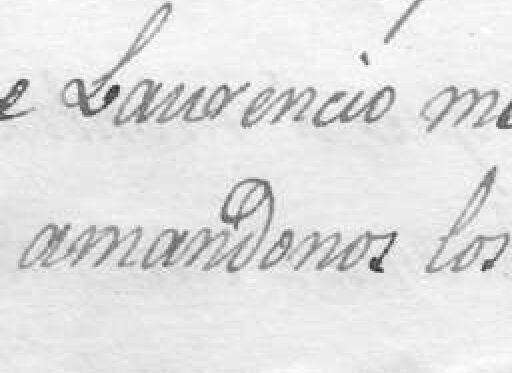 e Laurencio me
amandonos los